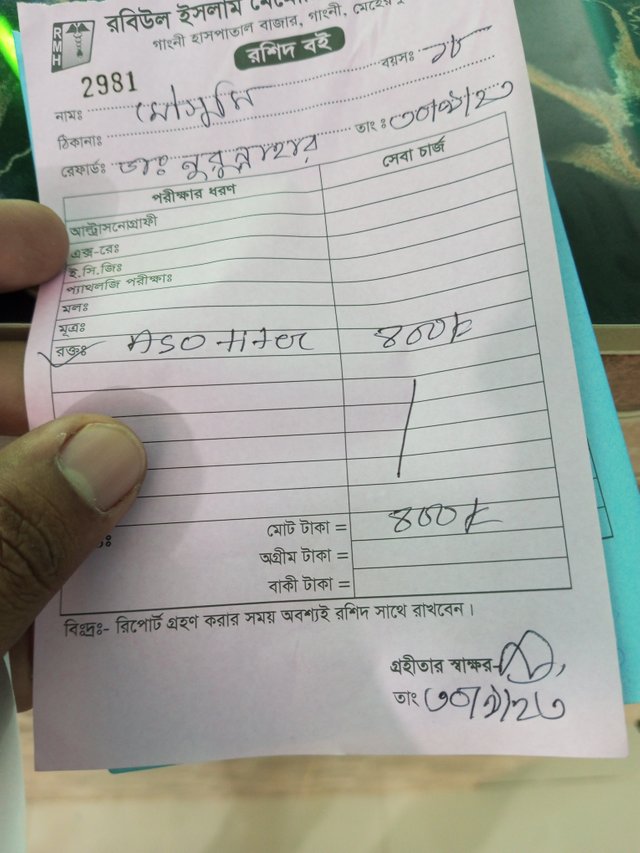 RMH
রবিউল ইসলাম
গাংনী হাসপাতাল বাজার, গাংনী,
রশিদ বই
2981
নামঃ মৌসুমি বয়সঃ ১৮
ঠিকানাঃ
রেফার্ডঃ ডাঃ নুরুন্নাহার তাং ঃ ৩০/৯/২৩
পরীক্ষার ধরণ সেবা চার্জ
আল্ট্রাসনোগ্রাফী
এক্স-রেঃ
ই.সি.জিঃ
প্যাথলজি পরীক্ষাঃ
মলঃ
মূত্রঃ
রক্তঃ ASO titer ৪০০৳
মোট টাকা = ৪০০৳
অগ্রীম টাকা =
বাকী টাকা =
বিঃদ্রঃ- রিপোর্ট গ্রহণ করার সময় অবশ্যই রশিদ সাথে রাখবেন।
গ্রহীতার স্বাক্ষর-
তাং ৩০/৯/২৩